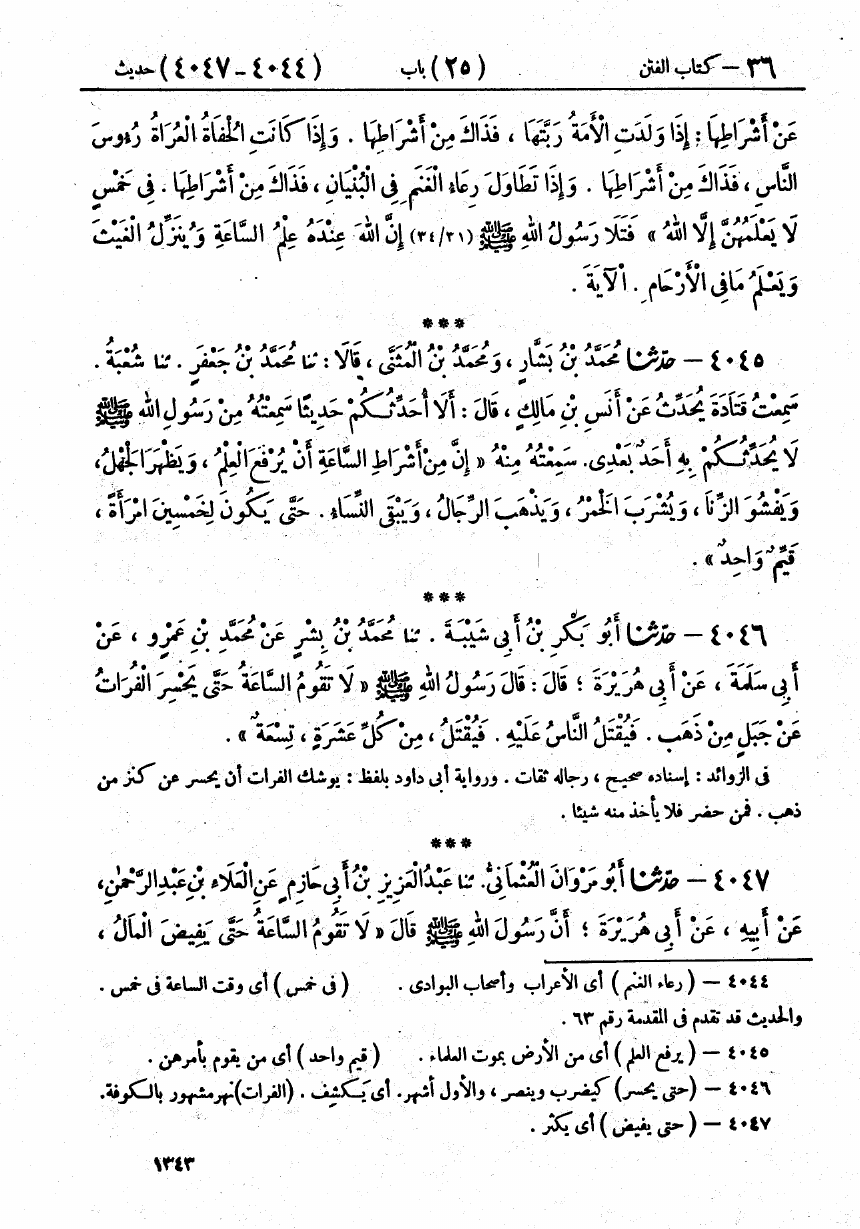 ٣٦ – كتاب الفتن (٢٥) باب (٤٠٤٤ – ٤٠٤٧) حديث
عَنْ أَشْرَاطِهَا : إِذَا وَلَدَتِ الْأَمَةُ رَبَّتَهَا ، فَذَاكَ مِنْ أَشْرَاطِهَا . وَإِذَا كَانَتِ الْحُفَاةُ الْعُرَاةُ رُءُوسَ
النَّاسِ ، فَذَاكَ مِنْ أَشْرَاطِهَا . وَإِذَا تَطَاوَلَ رِعَاءُ الْغَنَمِ فِى الْبُنْيَانِ ، فَذَاكَ مِنْ أَشْرَاطِهَا . فِى خَمْسٍ
لَا يَعْلَمُهُنَّ إِلَّا اللهُ » فَتَلَا رَسُولُ اللهِ ﷺ (٣٤/٣١) إِنَّ اللهَ عِنْدَهُ عِلْمُ السَّاعَةِ وَيُنَزِّلُ الْغَيْثَ
وَيَعْلَمُ مَا فِى الْأَرْحَامِ . الْآيَةَ .
***
٤٠٤٥ – حَدَّثَنَا مُحَمَّدُ بْنُ بَشَّارٍ ، وَمُحَمَّدُ بْنُ الْمُثَنَّى ، قَالَا : ثنا مُحَمَّدُ بْنُ جَعْفَرٍ . ثنا شُعْبَةُ .
سَمِعْتُ قَتَادَةَ يُحَدِّثُ عَنْ أَنَسِ بْنِ مَالِكٍ ، قَالَ : أَلَا أُحَدِّثُكُمْ حَدِيثًا سَمِعْتُهُ مِنْ رَسُولِ اللهِ ﷺ
لَا يُحَدِّثُكُمْ بِهِ أَحَدٌ بَعْدِى. سَمِعْتُهُ مِنْهُ « إِنَّ مِنْ أَشْرَاطِ السَّاعَةِ أَنْ يُرْفَعَ الْعِلْمُ ، وَيَظْهَرَ الْجَهْلُ،
وَيَفْشُوَ الزِّنَا ، وَيُشْرَبَ الْخَمْرُ ، وَيَذْهَبَ الرِّجَالُ ، وَيَبْقَى النِّسَاءُ . حَتَّى يَكُونَ لِخَمْسِينَ امْرَأَةً ،
قَيِّمٌ وَاحِدٌ » .
***
٤٠٤٦ – حَدَّثَنَا أَبُو بَكْرِ بْنُ أَبِى شَيْبَةَ . ثنا مُحَمَّدُ بْنُ بِشْرٍ عَنْ مُحَمَّدِ بْنِ عَمْرٍو ، عَنْ
أَبِى سَلَمَةَ ، عَنْ أَبِى هُرَيْرَةَ ؛ قَالَ : قَالَ رَسُولُ اللهِ ﷺ « لَا تَقُومُ السَّاعَةُ حَتَّى يَحْسِرَ الْفُرَاتُ
عَنْ جَبَلٍ مِنْ ذَهَبٍ . فَيَقْتَتِلُ النَّاسُ عَلَيْهِ . فَيُقْتَلُ ، مِنْ كُلِّ عَشَرَةٍ ، تِسْعَةٌ » .
فى الزوائد : إسناده صحيح ، رجاله ثقات . ورواية أبى داود بلفظ : يوشك الفرات أن يحسر عن كنز من
ذهب . فمن حضر فلا يأخذ منه شيئا .
***
٤٠٤٧ – حَدَّثَنَا أَبُو مَرْوَانَ الْعُثْمَانِىُّ. ثنا عَبْدُ الْعَزِيزِ بْنُ أَبِى حَازِمٍ عَنِ الْعَلَاءِ بْنِ عَبْدِ الرَّحْمٰنِ،
عَنْ أَبِيهِ ، عَنْ أَبِى هُرَيْرَةَ ؛ أَنَّ رَسُولَ اللهِ ﷺ قَالَ « لَا تَقُومُ السَّاعَةُ حَتَّى يَفِيضَ الْمَالُ ،
٤٠٤٤ – ( رعاء الغنم ) أى الأعراب وأصحاب البوادى . ( فى خمس ) أى وقت الساعة فى خمس .
والحديث قد تقدم فى المقدمة رقم ٦٣ .
٤٠٤٥ – ( يرفع العلم ) أى من الأرض بموت العلماء . ( قيم واحد ) أى من يقوم بأمرهن .
٤٠٤٦ – (حتى يحسر) كيضرب وينصر ، والأول أشهر. أى يكشف . (الفرات) نهر مشهور بالكوفة.
٤٠٤٧ – ( حتى يفيض ) أى يكثر .
١٣٤٣